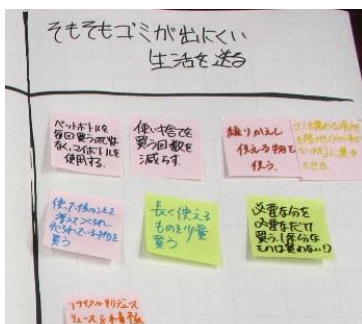 そもそもゴミが出にくい
生活を送る
ペットボトルを
毎回買うのでは
なく、マイボトルを
使用する。
使い捨てを
買う回数を
減らす。
繰りかえし
使える物を
使う。
使った後のことを
考えてつくられ、
売られている物を
買う
長く使える
ものを少量
買う
必要な分を
必要なだけ
買う。(余分な
ものは買わない!)
リサイクル